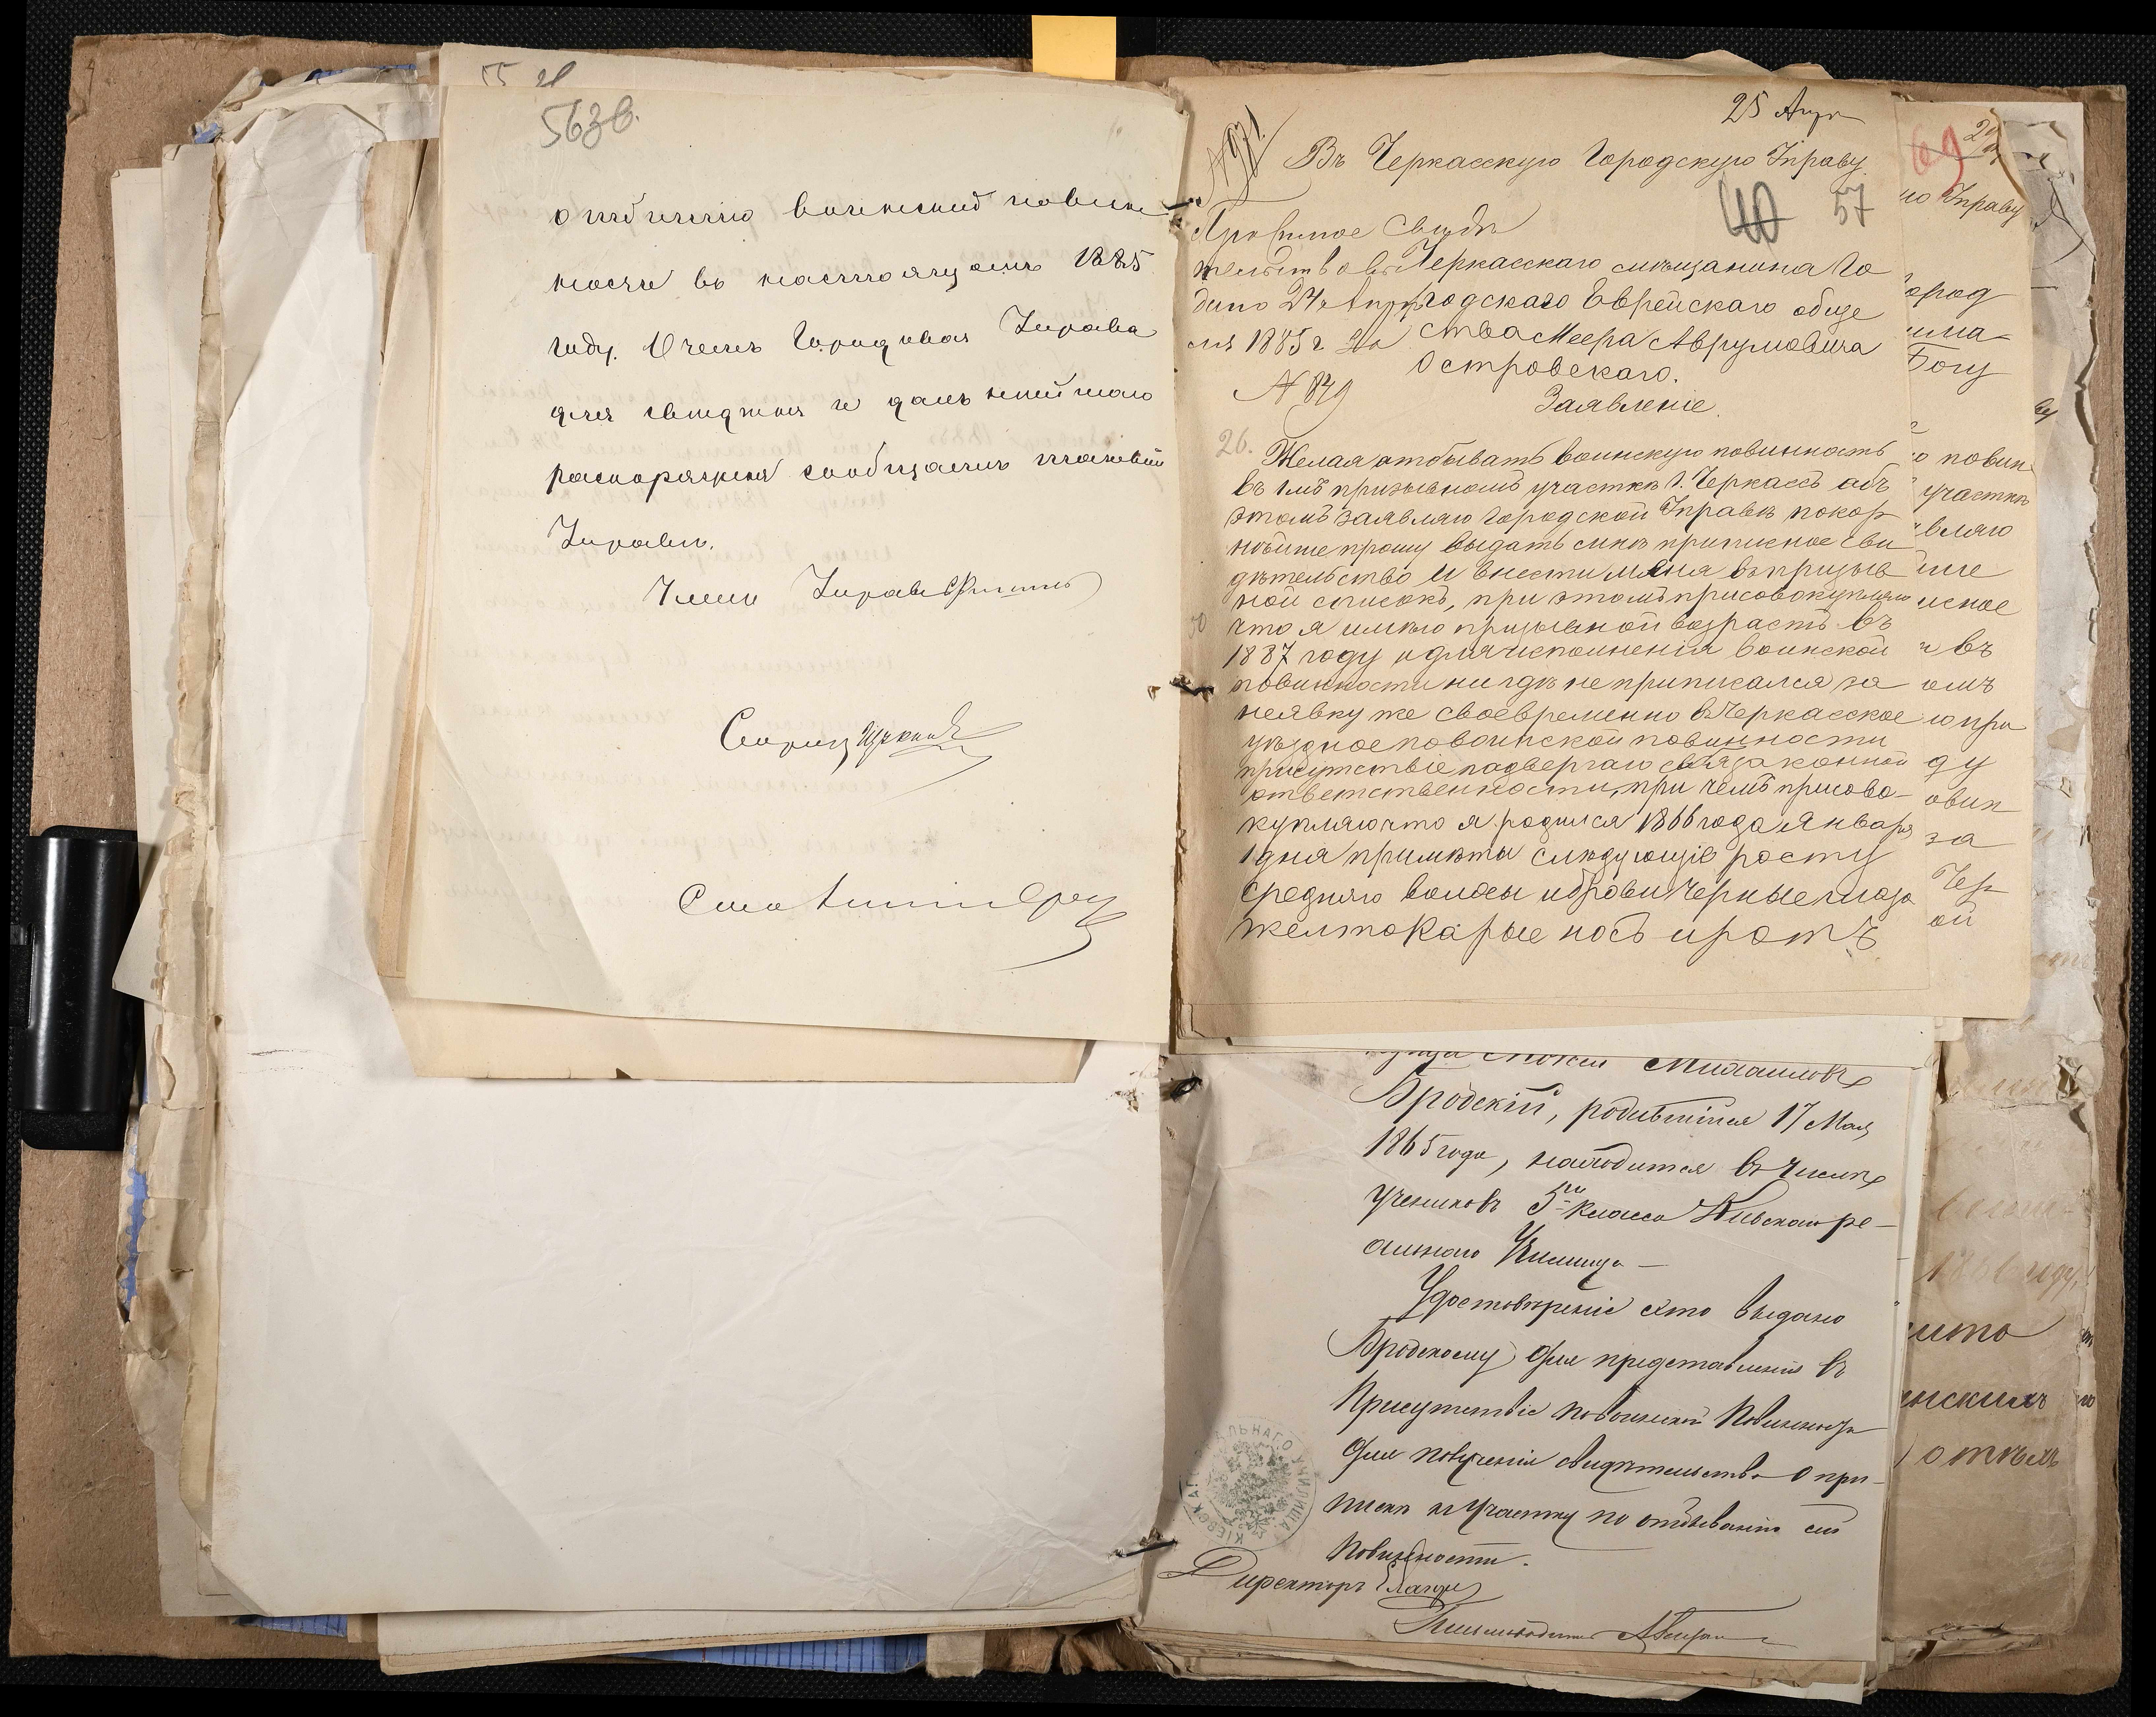 563в.
отбытию воинской повин-
ности въ настоящемъ 1885
году. О чемъ Городовая Управа
для свѣдѣнія и дальнѣйшаго
распоряженія сообщаетъ таковой
Управѣ.
Членъ Управы
Секретарь
25 Апр
Въ Черкасскую Городскую Управу
40 57
Приписное Свидѣ
тельство вы Черкасскаго мѣщанина Го
дано 24 Апрѣ родскаго Еврейскаго обще
ля 1885 г. За ства Меера Аврумовича
Островскаго.
№ 849
Заявленіе.
26. Желая отбывать воинскую повинность
въ 1мъ призывномъ участкѣ г. Черкассъ объ
этомъ заявляю городской Управѣ покор
нѣйше прошу выдать мнѣ приписное сви
дѣтельство и внести меня въ призыв
ной списокъ, при этомъ присовокупляю
что я имѣю призывной возрастъ въ
1887 году и для исполненія воинской
повинности нигдѣ не приписался за
неявку же своевременно въ Черкасское
уѣздное по воинской повинности
присутствіе подвергаю себя законной
ответственности, при чемъ присово-
купляю что я родился 1866 года Января
1 дня примѣты слѣдующіе росту
средняго волосы и брови черные глаза
желтокарые носъ и ротъ
69
ю Управу
ород
Богу
о повин
участкѣ
вляю
исное
и въ
омъ
ю при
ду
овин
за
Чер
ой
Михаиловъ
Бродскій, родившійся 17 Мая
1865 года, находится въ числѣ
учениковъ 5го класса Кіевскаго ре-
альнаго Училища —
Удостовѣреніе это выдано
Бродскому для представленія въ
Присутствіе по воинской Повинности
для полученія свидѣтельства о при-
пискѣ къ участку по отбыванію сей
повинности.
Директоръ
Письмоводитель
КІЕВСКАГО РЕАЛЬНАГО УЧИЛИЩА